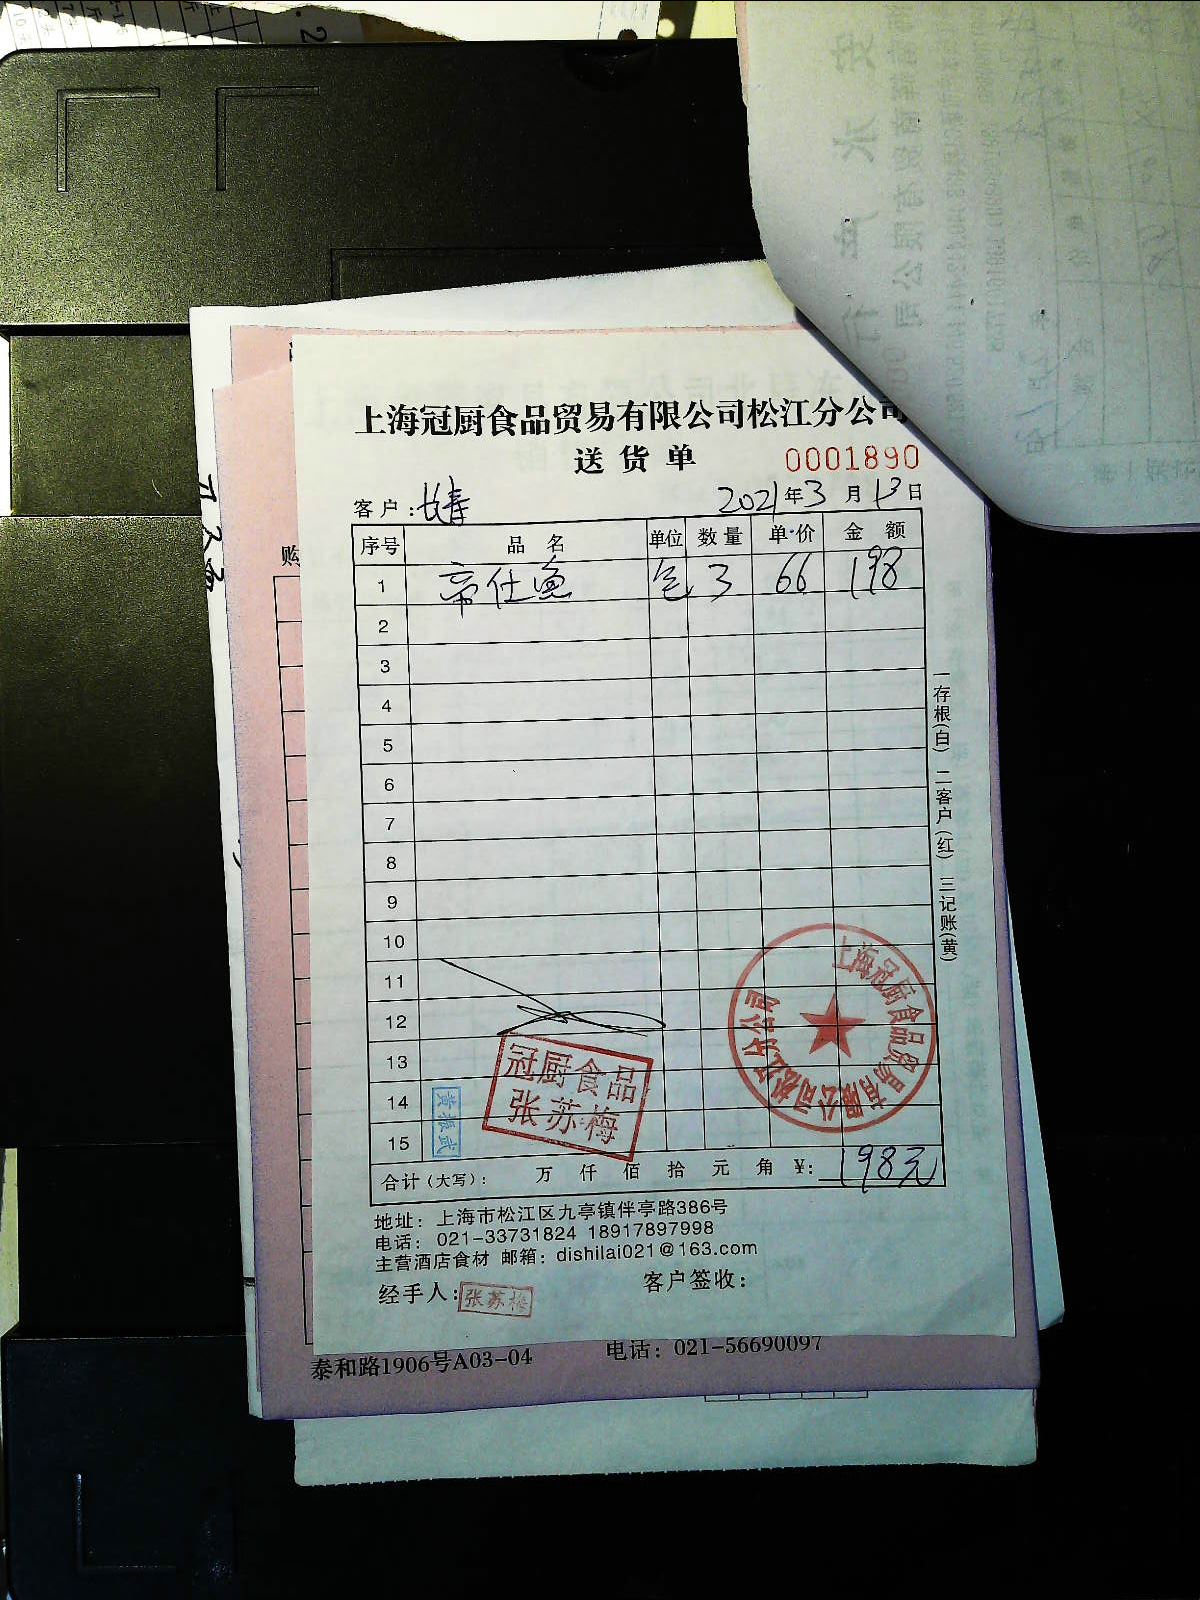 上海冠厨食品贸易有限公司松江分公司
送货单 0001890
客户: 长寿 2021年3月13日
序号 品名 单位 数量 单价 金额
1 帝仕鱼 包 3 66 198
2
3
4
5
6
7
8
9
10
11
12
13
14
15
冠厨食品
张苏梅
黄振武
上海冠厨食品贸易有限公司松江分公司
合计(大写): 万 仟 佰 拾 元 角 ¥: 198元
一存根(白) 二客户(红) 三记账(黄)
地址: 上海市松江区九亭镇伴亭路386号
电话: 021-33731824 18917897998
主营酒店食材 邮箱: dishilai021@163.com
经手人: 张苏梅 客户签收:
购
泰和路1906号A03-04 电话: 021-56690097